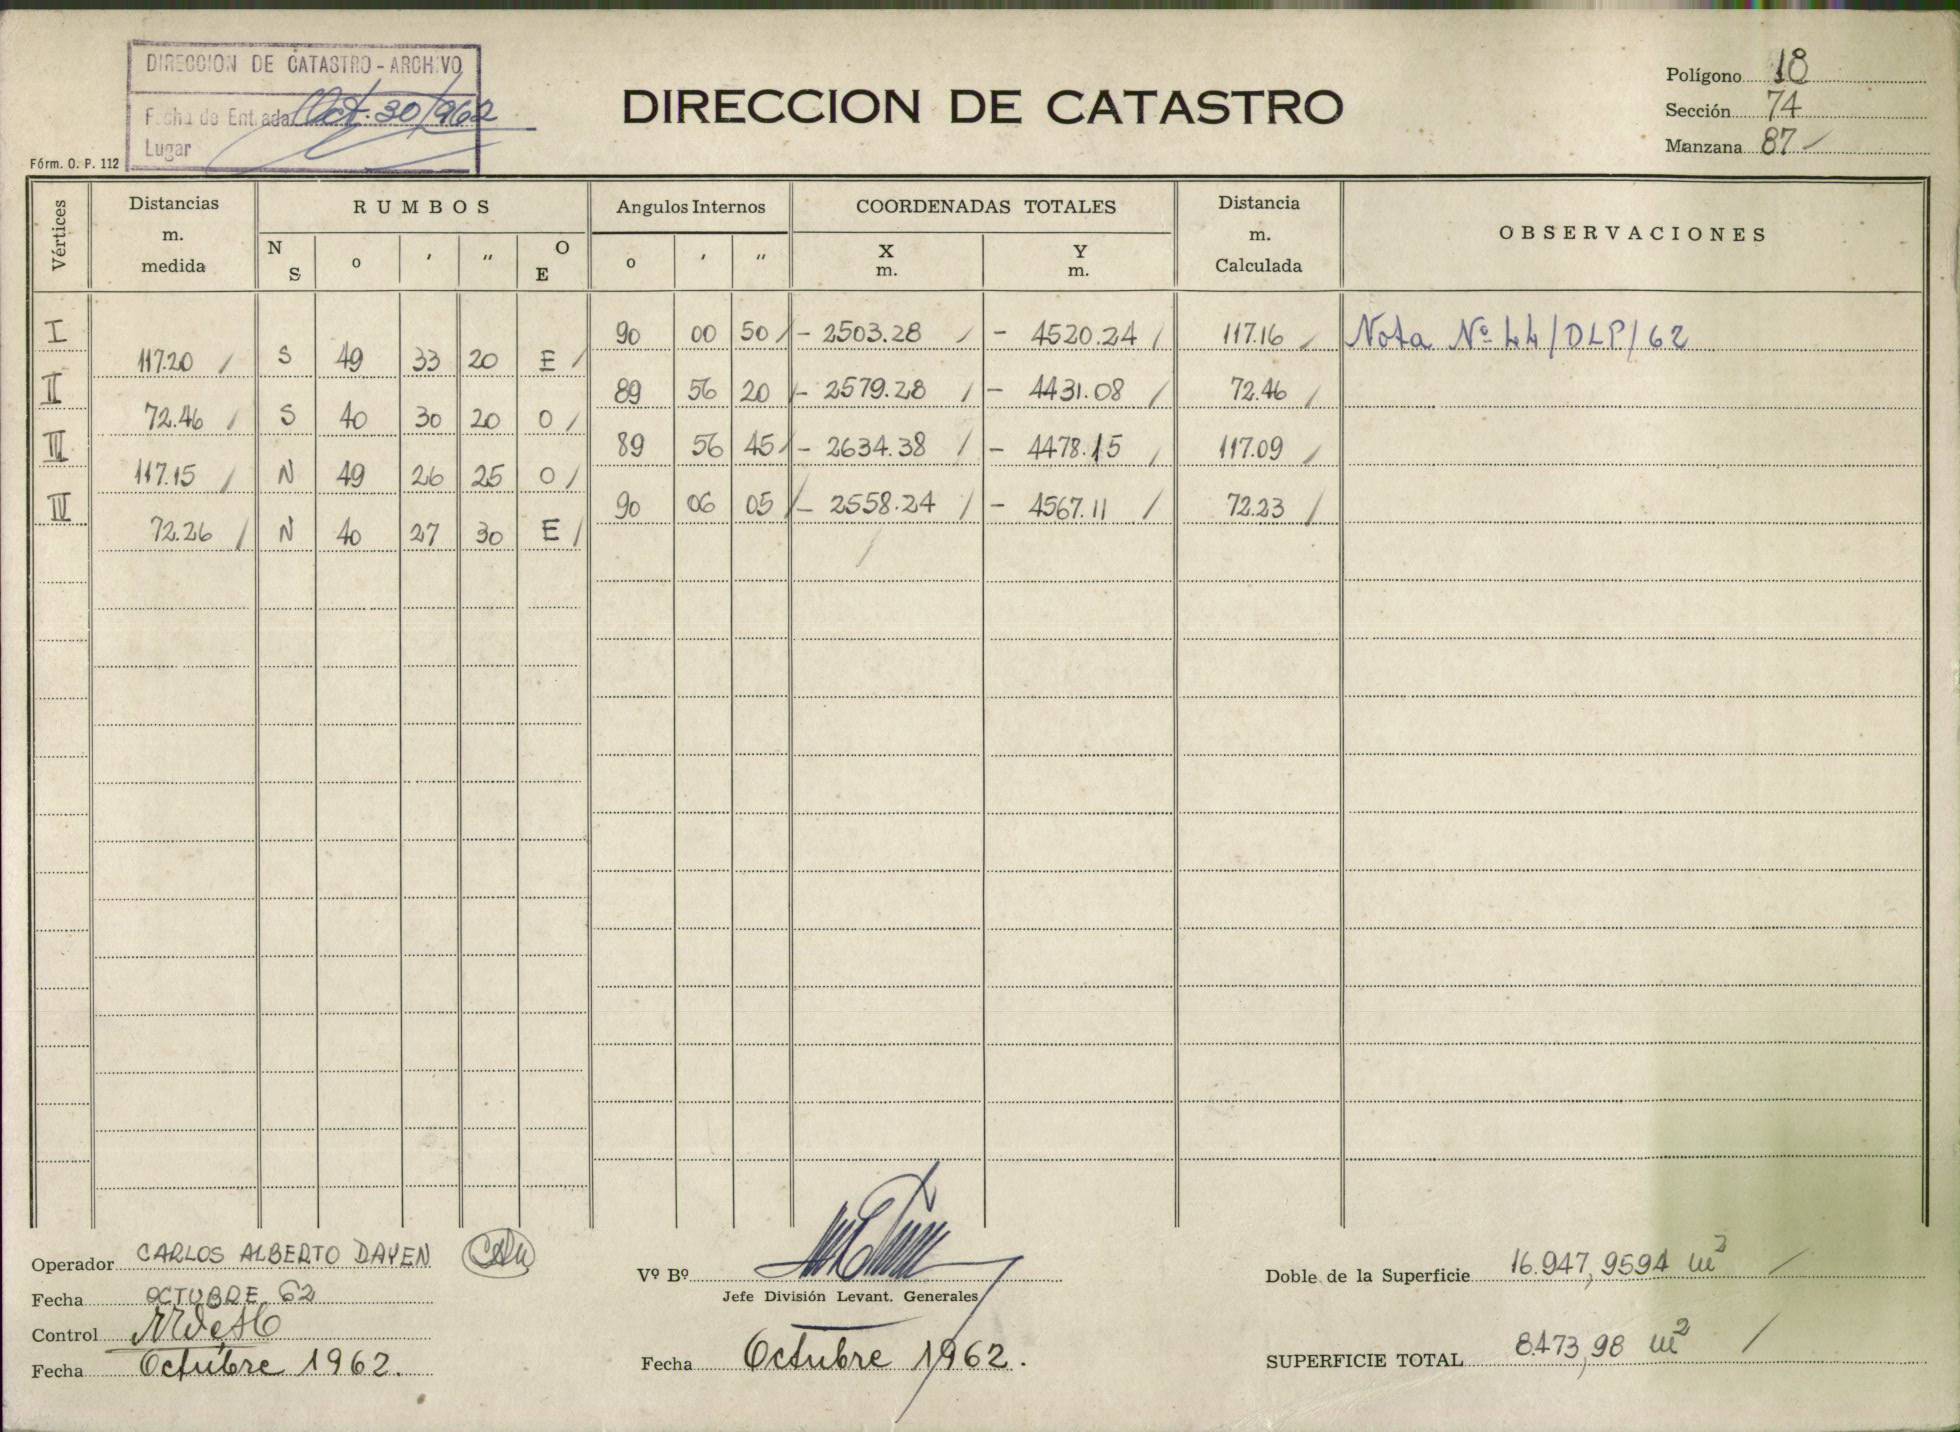 DIRECCION DE CATASTRO - ARCHIVO
Fecha de Entrada Oct. 30/962
Lugar
Fórm. O. P. 112
DIRECCION DE CATASTRO
Polígono 18
Sección 74
Manzana 87
Vértices
Distancias m. medida
RUMBOS
N S o ′ ″ O E
Angulos Internos
o ′ ″
COORDENADAS TOTALES
X m. Y m.
Distancia m. Calculada
OBSERVACIONES
I 90 00 50 - 2503.28 - 4520.24 117.16 Nota Nº 44/DLP/62
117.20 S 49 33 20 E
II 89 56 20 - 2579.28 - 4431.08 72.46
72.46 S 40 30 20 O
III 89 56 45 - 2634.38 - 4478.15 117.09
117.15 N 49 26 25 O
IV 90 06 05 - 2558.24 - 4567.11 72.23
72.26 N 40 27 30 E
Operador CARLOS ALBERTO DAYEN
Fecha OCTUBRE 62
Control
Fecha Octubre 1962.
Vº Bº
Jefe División Levant. Generales
Fecha Octubre 1962.
Doble de la Superficie 16.947,9594 m²
SUPERFICIE TOTAL 8473,98 m²